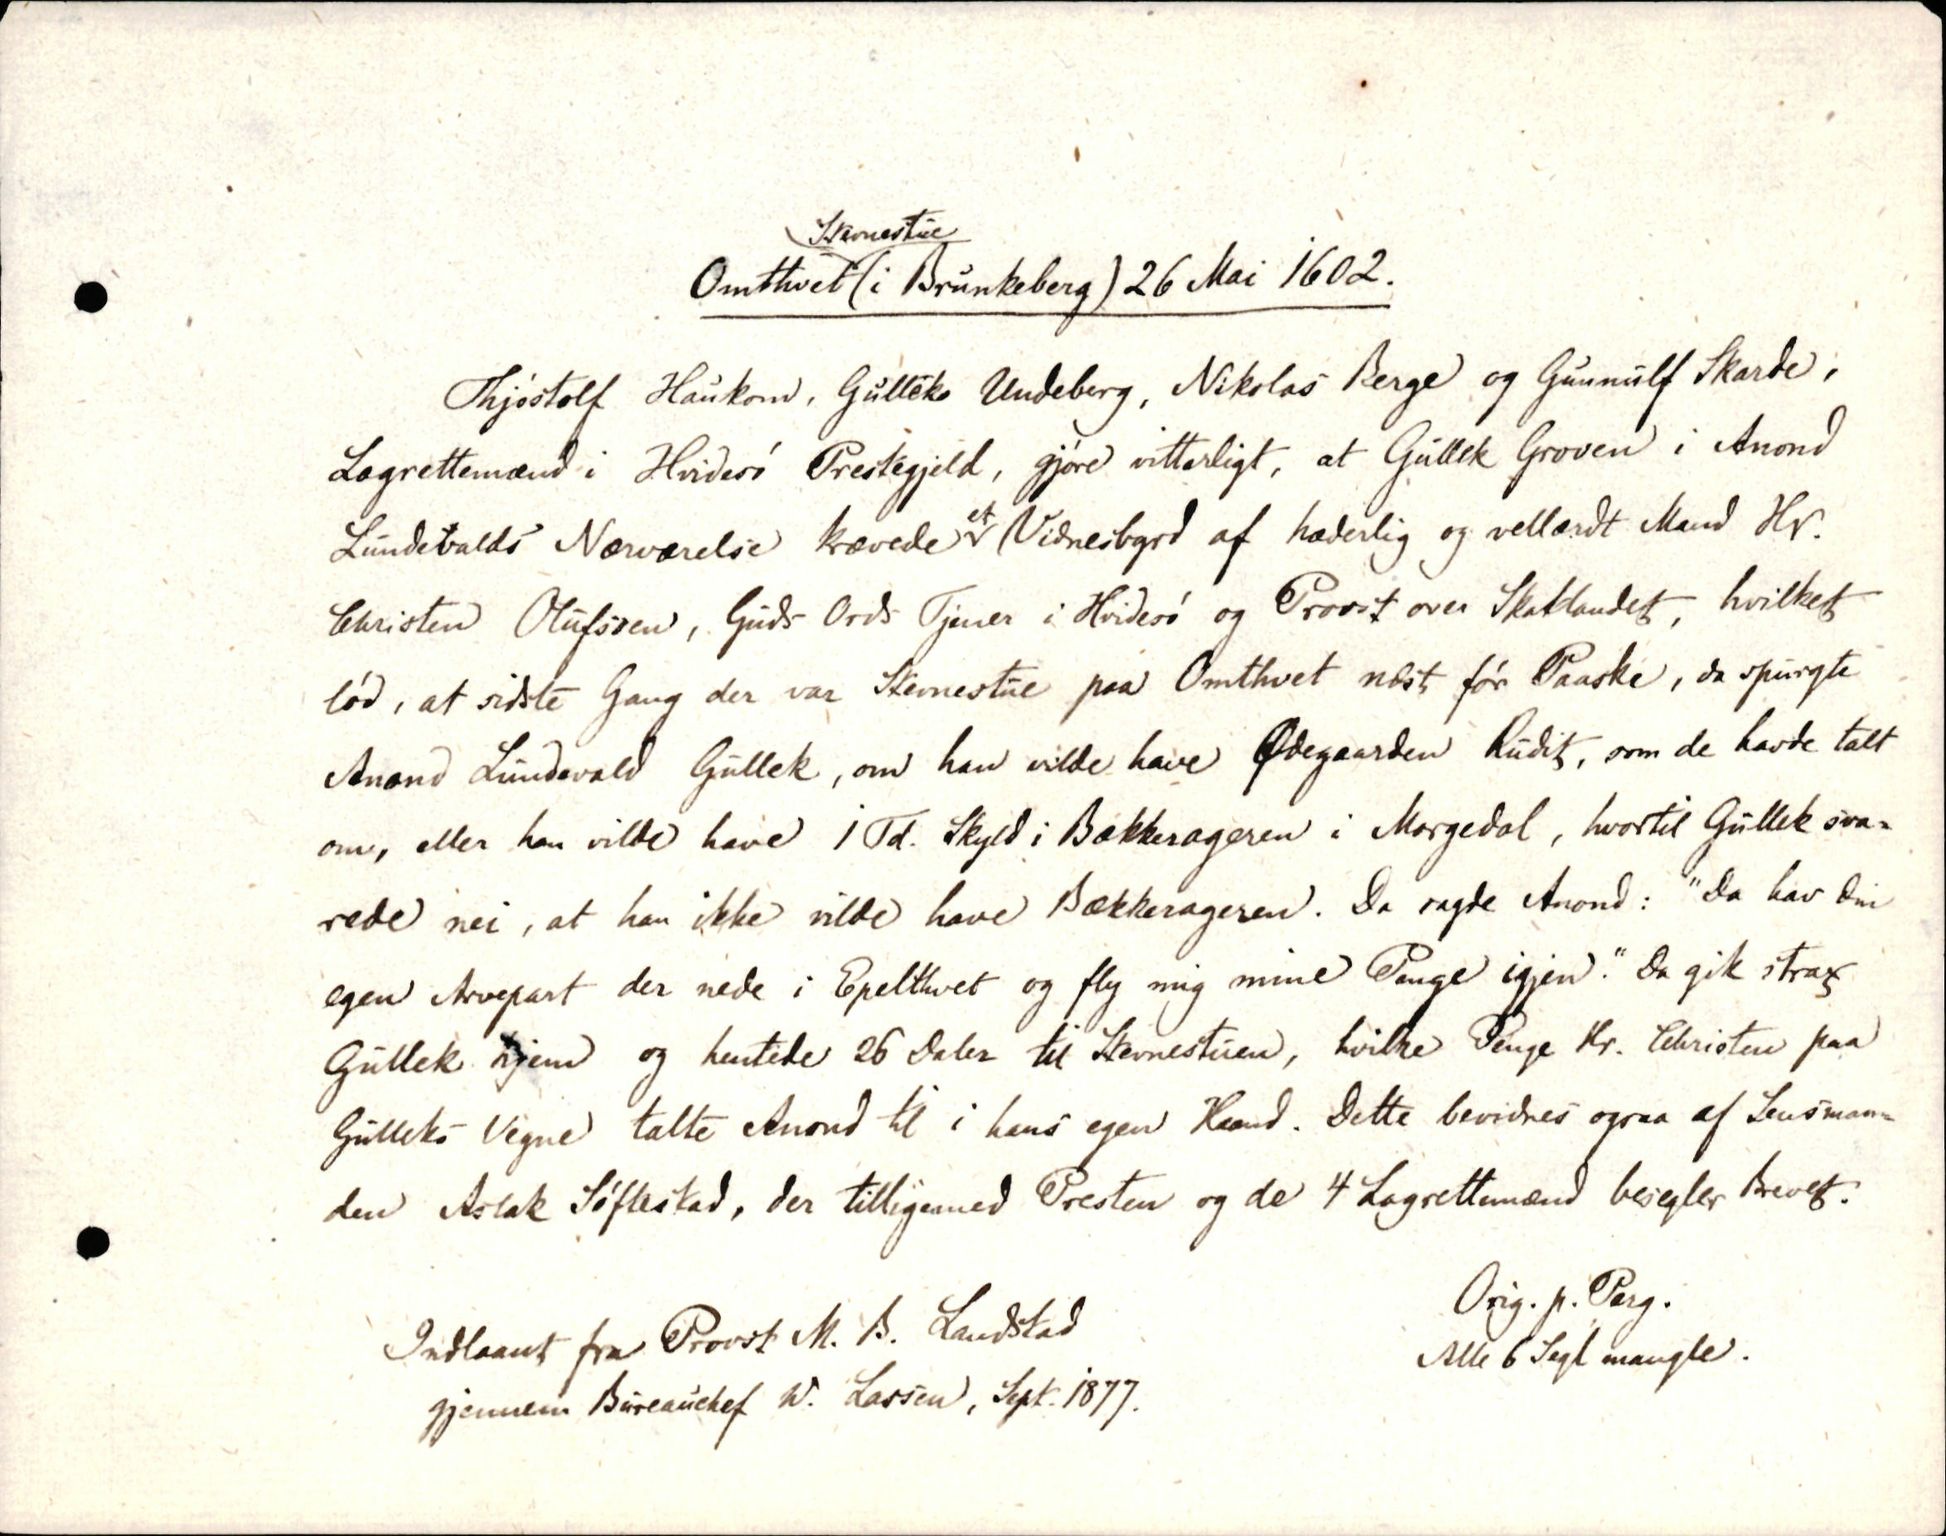 Stevnestue
Omthvet (i Brunkeberg) 26 Mai 1602.
Thjóstolf Haukom, Gulleks Undeberg, Nikolas Berge og Gunnulf Skarde,
Lagrettemænd i Hvidesó Prestegjeld, gjóre vitterligt, at Gullek Groven i Anond
Lundevalds Nærværelse krævede et Vidnesbyrd af hæderlig og vellærdt Mand Hr.
Christen Olufssen, Guds Ords Tjener i Hvidesó og Provst over Skatlandet, hvilket
lód, at sidste Gang der var Stevnestue paa Omthvet næst fór Paaske, da spurgte
Anond Lundevald Gullek, om han vilde have Ødegaarden Rudit, som de havde talt
om, eller han vilde have 1 Td. Skyld i Bækkerageren i Morgedal, hvortil Gullek sva-
rede nei, at han ikke vilde have Bækkerageren. Da sagde Anond: "Da hav din
egen Arvepart der nede i Epelthvet og fly mig mine Penge igjen." Da gik strax
Gullek hjem og hentede 26 Daler til Stevnestuen, hvilke Penge Hr. Christen paa
Gulleks Vegne talte Anond til i hans egen Haand. Dette bevidnes ogsaa af Lensman-
den Aslak Sóftestad, der tilligemed Presten og de 4 Lagrettemænd besegler Brevet.
Orig. p. Perg.
Alle 6 Segl mangle.
Indlaant fra Provst M. B. Landstad
gjennem Bureauchef W. Lassen, Sept. 1877.